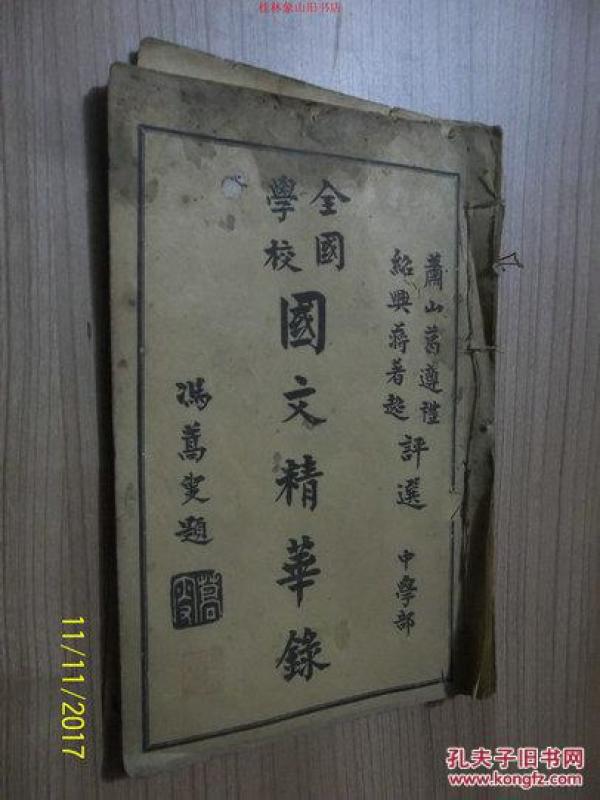 桂林象山旧书店
蕭山葛遵禮
紹興蔣著超
評選
中學部
全國
學校
國文精華錄
馮蒿叟題
蒿叟
11/11/2017
孔夫子旧书网
www.kongfz.com